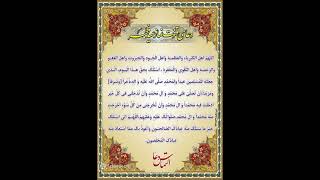 اللهم اهل الکبریاء والعظمة واهل الجود والجبروت واهل العفو
والرحمة واهل التقوی والمغفرة، اسئلک بحق هذا الیوم الذی
جعلته للمسلمین عیدا ولمحمد صلی الله علیه و آله ذخرا وشرفا
ومزیدا ان تصلی علی محمد و آل محمد وان تدخلنی فی کل خیر
ادخلت فیه محمدا و آل محمد وان تخرجنی من کل سوء اخرجت
منه محمدا و آل محمد صلواتک علیه وعلیهم اللهم انی اسئلک
خیر ما سئلک منه عبادک الصالحون واعوذ بک مما استعاذ منه
عبادک المخلصون.
التماس دعا